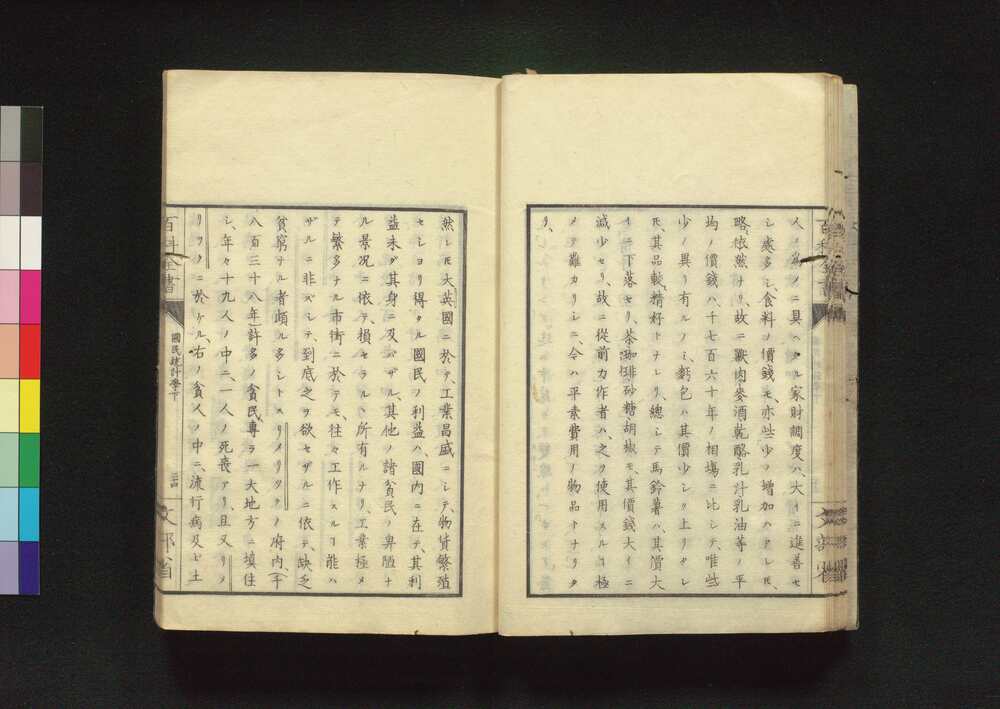 人ノ為メニ具ヘタル家財調度ハ、大イニ進善セ
シ処多シ、食料ノ價錢モ、亦些少ノ増加ハアレㇳ𪜈、
略依然ナリ、故ニ獸肉麥酒乾酪乳汁乳油等ノ平
均ノ價錢ハ、千七百六十年ノ相場ニ比シテ、唯些
少ノ異リ有ルノミ、麪包ハ其價少シク上リタレ
𪜈、其品較〻精好トナレリ、總シテ馬鈴薯ハ、其價大
イニ下落セリ、茶珈琲砂糖胡椒モ、其價錢大イニ
減少セリ、故ニ從前力作者ハ、之ヲ使用スルコ極
メテ難カリシニ、今ハ平素費用ノ物品トナリタ
リ、
然レ𪜈大英國ニ於テ、工業昌盛ニシテ、物貨繁殖
セシヨリ得タル國民ノ利益ハ、國内ニ在テ、其利
益未ダ其身ニ及バザル、其他ノ諸貧民ノ卑陋ナ
ル景况ニ依テ、損セラルヽ所有ルナリ、工業極メ
テ繁多ナル市街ニ於テモ、往々工作スルコ能ハ
ザルニ非ズシテ、到底之ヲ欲セザルニ依テ、缺乏
貧窮ナル者頗ル多シトス、リメリクノ府内、千
八百三十八年許多ノ貧民、專ラ一大地方ニ填住
シ、年々十九人ノ中ニ、一人ノ死喪アリ、且又リノ
リクニ於ケル、右ノ貧人ノ中ニ、流行病及ヒ土
百科全書
國民統計學下
文部省